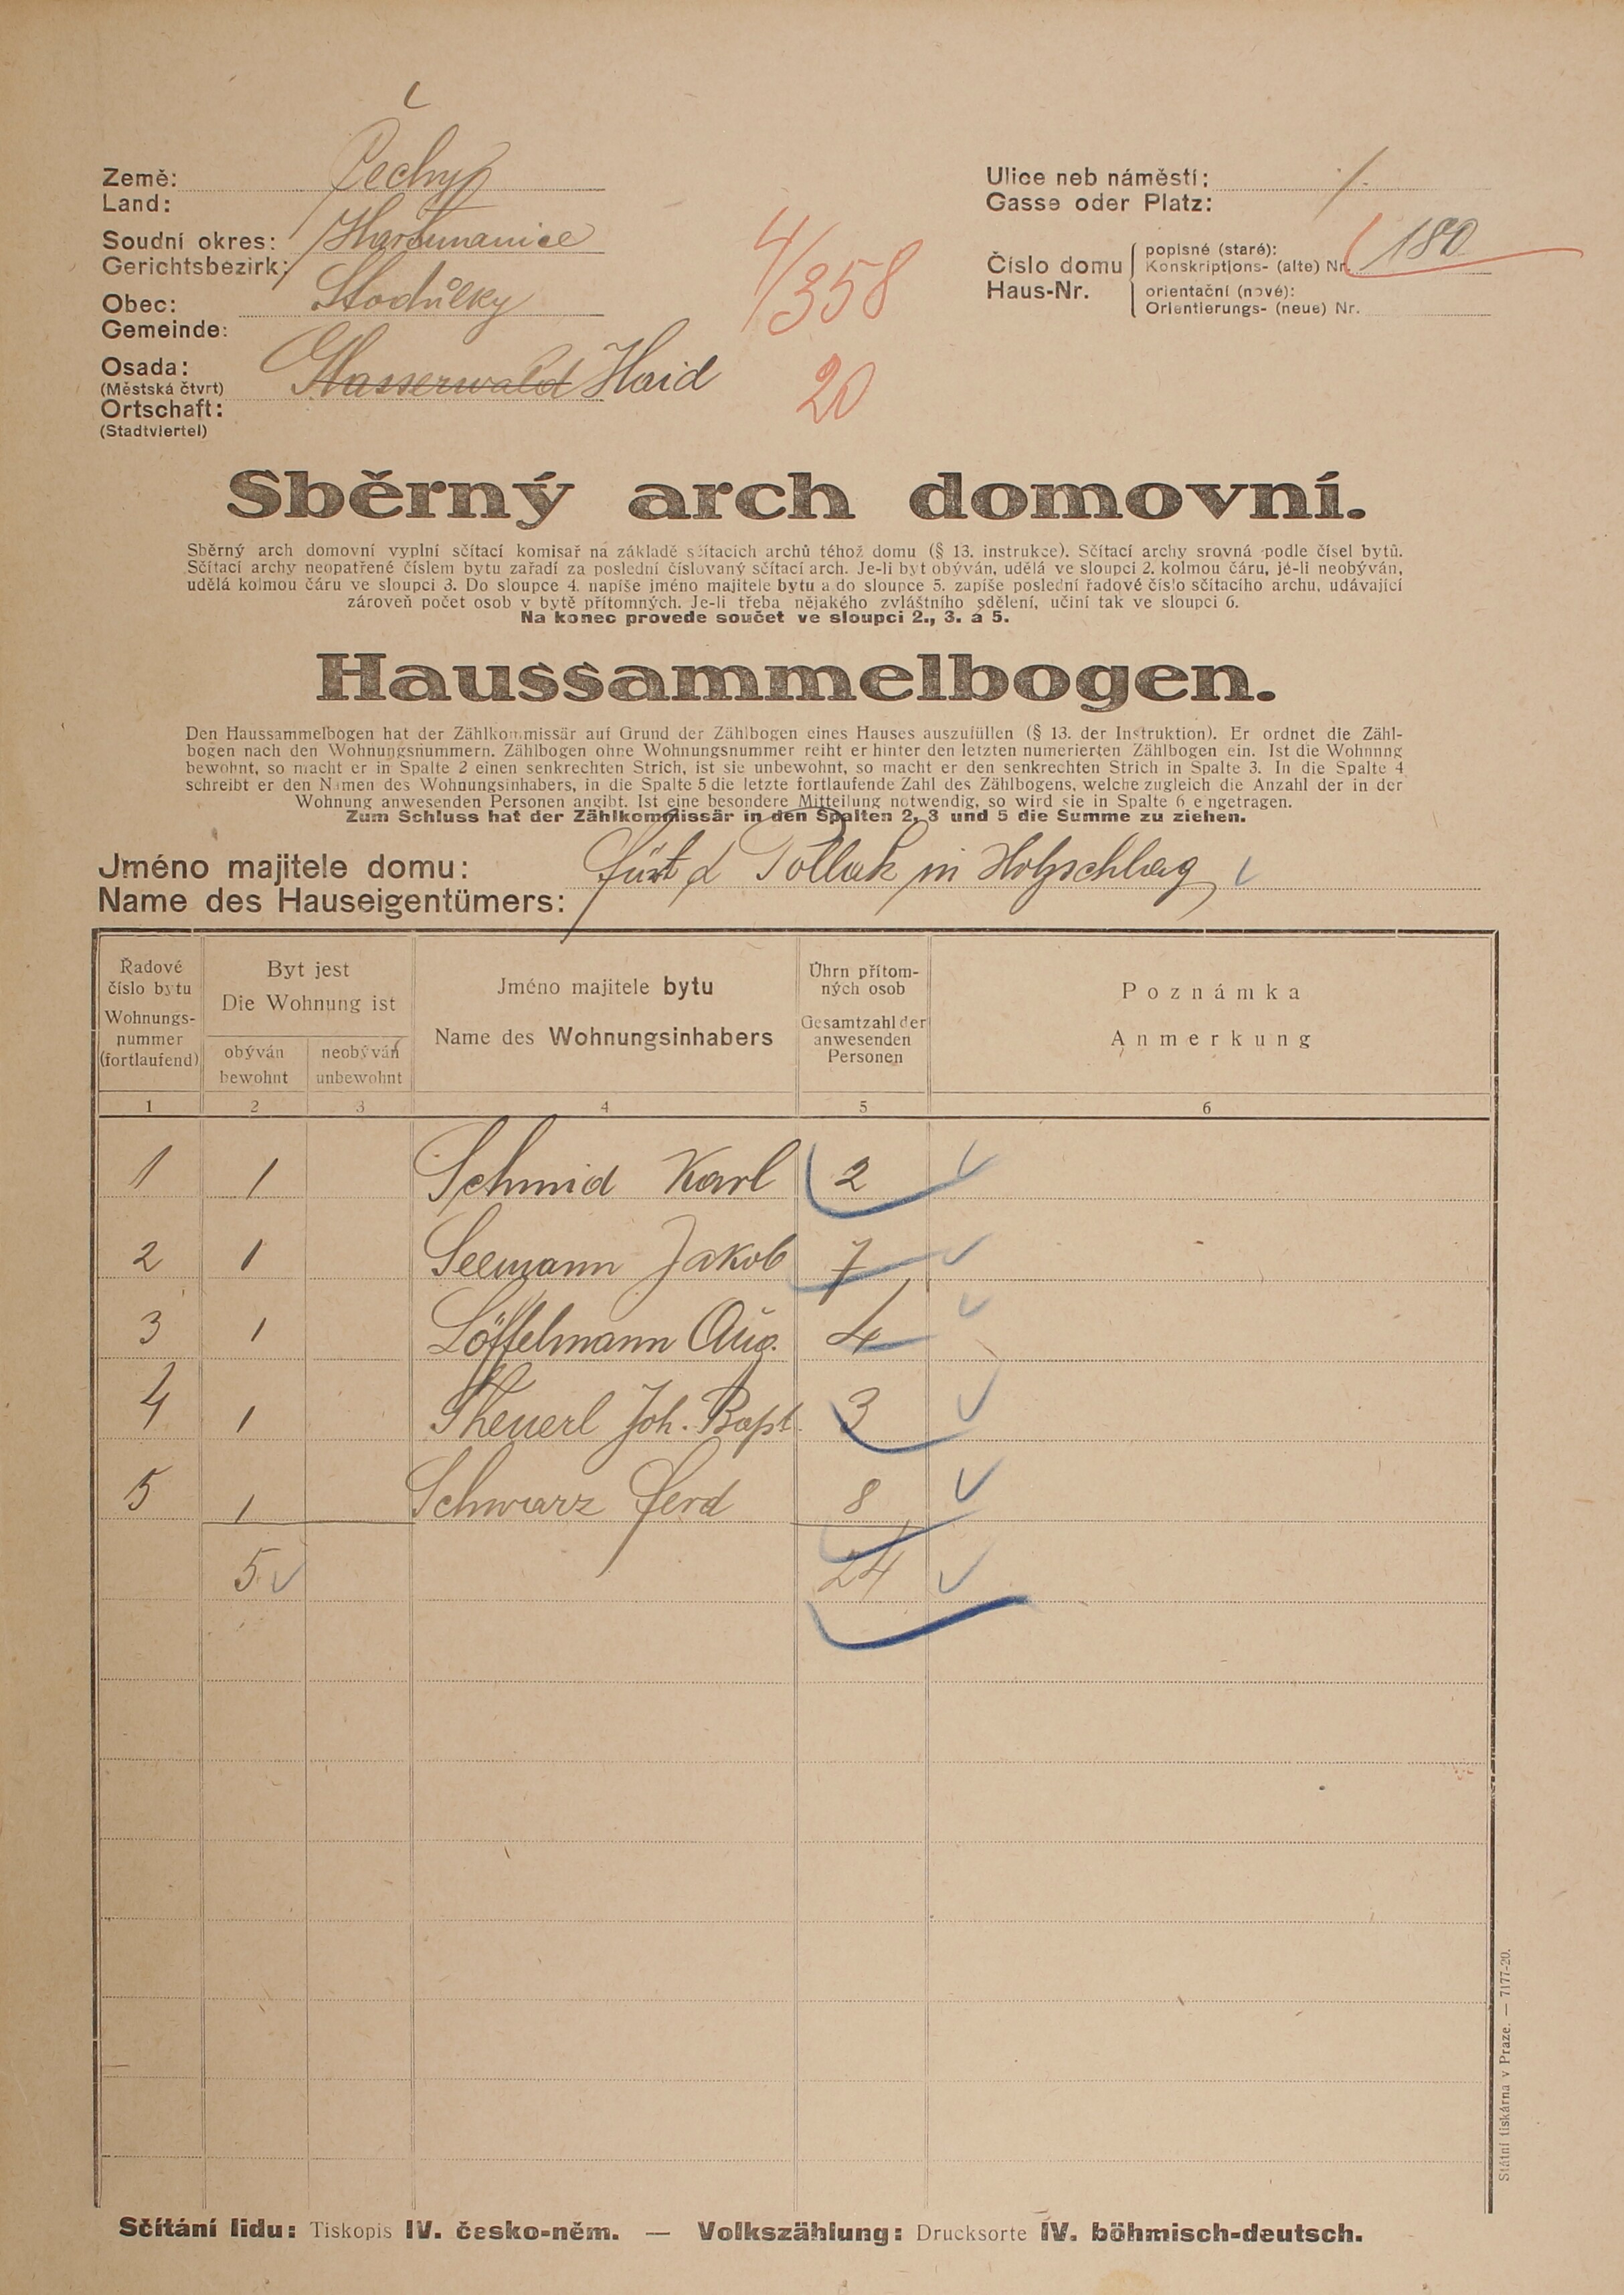 Země: Čechy
Land:
Soudní okres: Hartmanice
Gerichtsbezirk:
Obec: Stodůlky
Gemeinde:
Osada: Haid
(Městská čtvrt)
Ortschaft:
(Stadtviertel)
4/358
20
Ulice neb náměstí: /.
Gasse oder Platz:
Číslo domu
Haus-Nr.
popisné (staré):
Konskriptions- (alte) Nr. 180
orientační (nové):
Orientierungs- (neue) Nr.
Sběrný arch domovní.
Sběrný arch domovní vyplní sčítací komisař na základě sčítacich archů téhož domu (§ 13. instrukce). Sčítací archy srovná podle čísel bytů.
Sčítací archy neopatřené číslem bytu zařadí za poslední číslovaný sčítací arch. Je-li byt obýván, udělá ve sloupci 2. kolmou čáru, jé-li neobýván,
udělá kolmou čáru ve sloupci 3. Do sloupce 4. napíše jméno majitele bytu a do sloupce 5. zapíše poslední řadové číslo sčítacího archu, udávající
zároveň počet osob v bytě přítomných. Je-li třeba nějakého zvláštního sdělení, učiní tak ve sloupci 6.
Na konec provede součet ve sloupci 2., 3. a 5.
Haussammelbogen.
Den Haussammelbogen hat der Zählkommissär auf Grund der Zählbogen eines Hauses auszufüllen (§ 13. der Instruktion). Er ordnet die Zähl-
bogen nach den Wohnungsnummern. Zählbogen ohne Wohnungsnummer reiht er hinter den letzten numerierten Zählbogen ein. Ist die Wohnnng
bewohnt, so macht er in Spalte 2 einen senkrechten Strich, ist sie unbewohnt, so macht er den senkrechten Strich in Spalte 3. In die Spalte 4
schreibt er den Namen des Wohnungsinhabers, in die Spalte 5 die letzte fortlaufende Zahl des Zählbogens, welche zugleich die Anzahl der in der
Wohnung anwesenden Personen angibt. Ist eine besondere Mitteilung notwendig, so wird sie in Spalte 6 eingetragen.
Zum Schluss hat der Zählkommissär in den Spalten 2, 3 und 5 die Summe zu ziehen.
Jméno majitele domu: Fürt & Pollak in Holzschlag
Name des Hauseigentümers:
Řadové číslo bytu
Wohnungs-nummer (fortlaufend)
Byt jest
Die Wohnung ist
obýván
bewohnt
neobýván
unbewohnt
Jméno majitele bytu
Name des Wohnungsinhabers
Úhrn přítom-ných osob
Gesamtzahl der anwesenden Personen
Poznámka
Anmerkung
1 2 3 4 5 6
1 1 Schmid Karl 2
2 1 Seemann Jakob 7
3 1 Löffelmann Aug. 4
4 1 Theuerl Joh. Bapt. 3
5 1 Schwarz Ferd 8
5 24
Státní tiskárna v Praze. — 7177-20.
Sčítání lidu: Tiskopis IV. česko-něm. — Volkszählung: Drucksorte IV. böhmisch-deutsch.